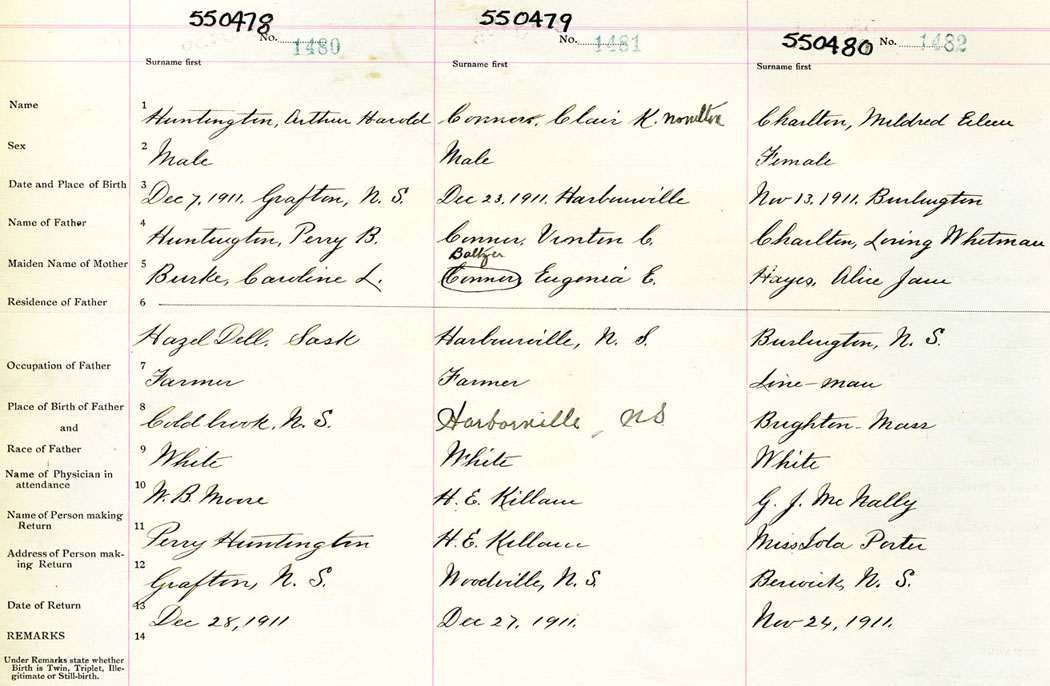 550478 550479 550480
No. 1480 No. 1481 No. 1482
Surname first Surname first Surname first
Name 1 Huntington, Arthur Harold Connors, Clair K. Chealton, Mildred Eileen
Sex 2 Male Male Female
Date and Place of Birth 3 Dec 7, 1911. Grafton, N. S. Dec 23, 1911. Harbourville Nov 13, 1911. Burlington
Name of Father 4 Huntington, Perry B. Connor, Vinton C. Charlton, Loring Whitman
Baltzer
Maiden Name of Mother 5 Burke, Caroline L. Connor, Eugenia E. Hayes, Alice Jane
Residence of Father 6
Hazel Dell, Sask Harbourville, N. S. Burlington, N. S.
Occupation of Father 7 Farmer Farmer Line-man
Place of Birth of Father 8 Coldbrook, N. S. Harborville, NS Brighton-Mass
and
Race of Father 9 White White White
Name of Physician in
attendance 10 W. B. Moore H. E. Killam G. J. McNally
Name of Person making
Return 11 Perry Huntington H. E. Killam Miss Iola Porter
Address of Person mak-
ing Return 12 Grafton, N. S. Woodville, N. S. Berwick, N. S.
Date of Return 13 Dec 28, 1911 Dec 27, 1911. Nov 24, 1911.
REMARKS 14
Under Remarks state whether
Birth is Twin, Triplet, Ille-
gitimate or Still-birth.